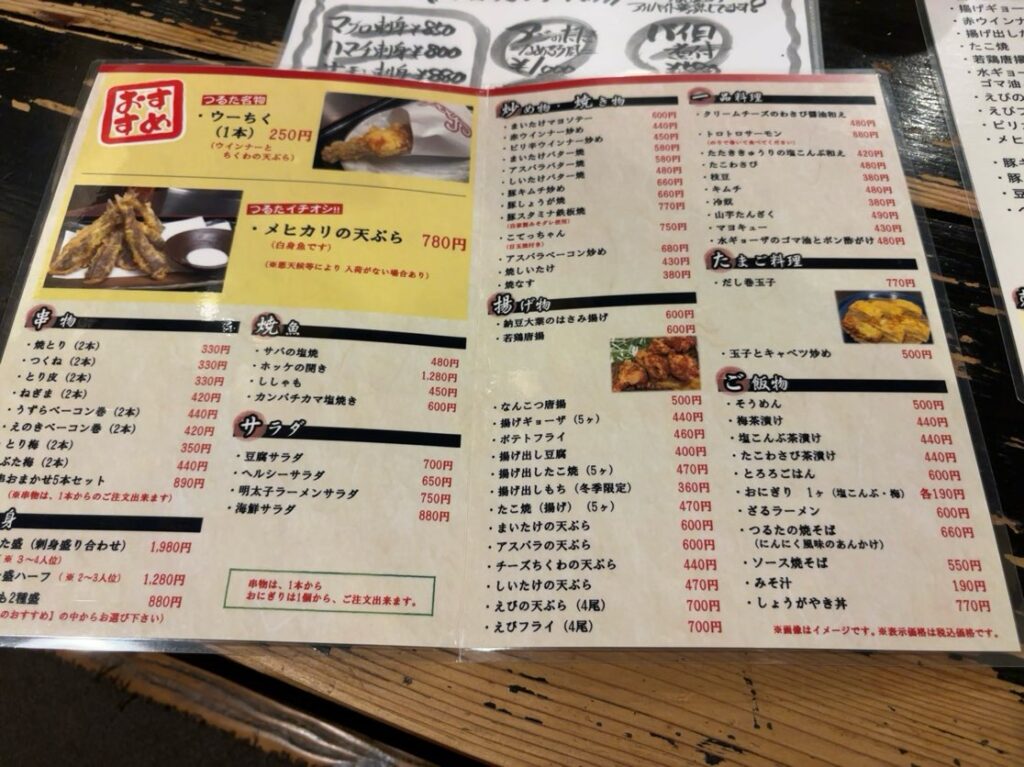 マグロ刺身 ¥850
ハマチ刺身 ¥800
¥880
¥1,000
おすすめ
つるた名物
・ウーちく
(1本) 250円
(ウインナーと
ちくわの天ぷら)
つるたイチオシ!!
・メヒカリの天ぷら 780円
(白身魚です)
(※悪天候等により 入荷がない場合あり)
串物
・焼とり (2本) 330円
・つくね (2本) 330円
・とり皮 (2本) 330円
・ねぎま (2本) 420円
・うずらベーコン巻 (2本) 440円
・えのきベーコン巻 (2本) 420円
・とり梅 (2本) 350円
ぶた梅 (2本) 440円
串おまかせ5本セット 890円
(※串物は、1本からのご注文出来ます)
身
た盛 (刺身盛り合わせ) 1,980円
(※ 3〜4人位)
盛ハーフ (※ 2〜3人位) 1,280円
も2種盛 880円
のおすすめ】の中からお選び下さい)
焼魚
・サバの塩焼 480円
・ホッケの開き 1,280円
・ししゃも 450円
・カンパチカマ塩焼き 600円
サラダ
・豆腐サラダ 700円
・ヘルシーサラダ 650円
・明太子ラーメンサラダ 750円
・海鮮サラダ 880円
串物は、1本から
おにぎりは1個から、ご注文出来ます。
炒め物・焼き物
・まいたけマヨソテー 600円
・赤ウインナー炒め 440円
・ピリ辛ウインナー炒め 450円
・まいたけバター焼 580円
・アスパラバター焼 580円
・しいたけバター焼 480円
・豚キムチ炒め 660円
・豚しょうが焼 660円
・豚スタミナ鉄板焼 770円
・こてっちゃん 750円
(目玉焼付き)
・アスパラベーコン炒め 680円
・焼しいたけ 430円
・焼なす 380円
揚げ物
・納豆大葉のはさみ揚げ 600円
・若鶏唐揚 600円
・なんこつ唐揚 500円
・揚げギョーザ (5ヶ) 440円
・ポテトフライ 460円
・揚げ出し豆腐 400円
・揚げ出したこ焼 (5ヶ) 470円
・揚げ出しもち (冬季限定) 360円
・たこ焼 (揚げ) (5ヶ) 470円
・まいたけの天ぷら 600円
・アスパラの天ぷら 600円
・チーズちくわの天ぷら 440円
・しいたけの天ぷら 470円
・えびの天ぷら (4尾) 700円
・えびフライ (4尾) 700円
一品料理
・クリームチーズのわさび醤油和え 480円
・トロトロサーモン 880円
(のりで巻いて食べてください)
・たたききゅうりの塩こんぶ和え 420円
・たこわさび 480円
・枝豆 380円
・キムチ 480円
・冷奴 380円
・山芋たんざく 490円
・マヨキュー 430円
・水ギョーザのゴマ油とポン酢がけ 480円
たまご料理
・だし巻玉子 770円
・玉子とキャベツ炒め 500円
ご飯物
・そうめん 500円
・梅茶漬け 440円
・塩こんぶ茶漬け 440円
・たこわさび茶漬け 440円
・とろろごはん 600円
・おにぎり 1ヶ (塩こんぶ・梅) 各190円
・ざるラーメン 600円
・つるたの焼そば 660円
(にんにく風味のあんかけ)
・ソース焼そば 550円
・みそ汁 190円
・しょうがやき丼 770円
※画像はイメージです。※表示価格は税込価格です。
・揚げギョー
・赤ウインナ
・揚げ出し
・たこ焼
・若鶏唐揚
・水ギョー
ゴマ油
・えびの
・えびフ
・ピリ
・メヒ
・豚
・豚
・豆